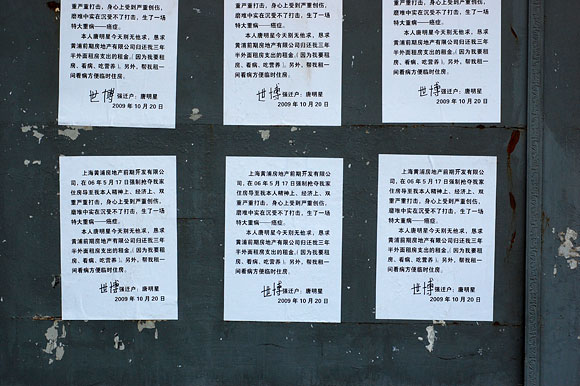 重严重打击，身心上受到严重创伤，
磨难中实在沉受不了打击，生了一场
特大重病——癌症。
本人唐明星今天别无他求，恳求
黄浦前期房地产有限公司归还我三年
半外面租房支出的租金〖因为我要租
房、看病、吃营养〗。另外，帮我租一
间看病方便临时住房。
世博强迁户：唐明星
2009 年 10 月 20 日
重严重打击，身心上受到严重创伤，
磨难中实在沉受不了打击，生了一场
特大重病——癌症。
本人唐明星今天别无他求，恳求
黄浦前期房地产有限公司归还我三年
半外面租房支出的租金〖因为我要租
房、看病、吃营养〗。另外，帮我租一
间看病方便临时住房。
世博强迁户：唐明星
2009 年 10 月 20 日
磨难中实在沉受不了打击，生了一场
特大重病——癌症。
本人唐明星今天别无他求，恳求
黄浦前期房地产有限公司归还我三年
半外面租房支出的租金〖因为我要租
房、看病、吃营养〗。另外，帮我租一
间看病方便临时住房。
世博强迁户：唐明星
2009 年 10 月 20 日
上海黄浦房地产前期开发有限公
司，在 06 年 5 月 17 日强制抢夺我家
住房导至我本人精神上、经济上、双
重严重打击，身心上受到严重创伤，
磨难中实在沉受不了打击，生了一场
特大重病——癌症。
本人唐明星今天别无他求，恳求
黄浦前期房地产有限公司归还我三年
半外面租房支出的租金〖因为我要租
房、看病、吃营养〗。另外，帮我租一
间看病方便临时住房。
世博强迁户：唐明星
2009 年 10 月 20 日
上海黄浦房地产前期开发有限公
司，在 06 年 5 月 17 日强制抢夺我家
住房导至我本人精神上、经济上、双
重严重打击，身心上受到严重创伤，
磨难中实在沉受不了打击，生了一场
特大重病——癌症。
本人唐明星今天别无他求，恳求
黄浦前期房地产有限公司归还我三年
半外面租房支出的租金〖因为我要租
房、看病、吃营养〗。另外，帮我租一
间看病方便临时住房。
世博强迁户：唐明星
2009 年 10 月 20 日
上海黄浦房地产前期开发有限公
司，在 06 年 5 月 17 日强制抢夺我家
住房导至我本人精神上、经济上、双
重严重打击，身心上受到严重创伤，
磨难中实在沉受不了打击，生了一场
特大重病——癌症。
本人唐明星今天别无他求，恳求
黄浦前期房地产有限公司归还我三年
半外面租房支出的租金〖因为我要租
房、看病、吃营养〗。另外，帮我租一
间看病方便临时住房。
世博强迁户：唐明星
2009 年 10 月 20 日